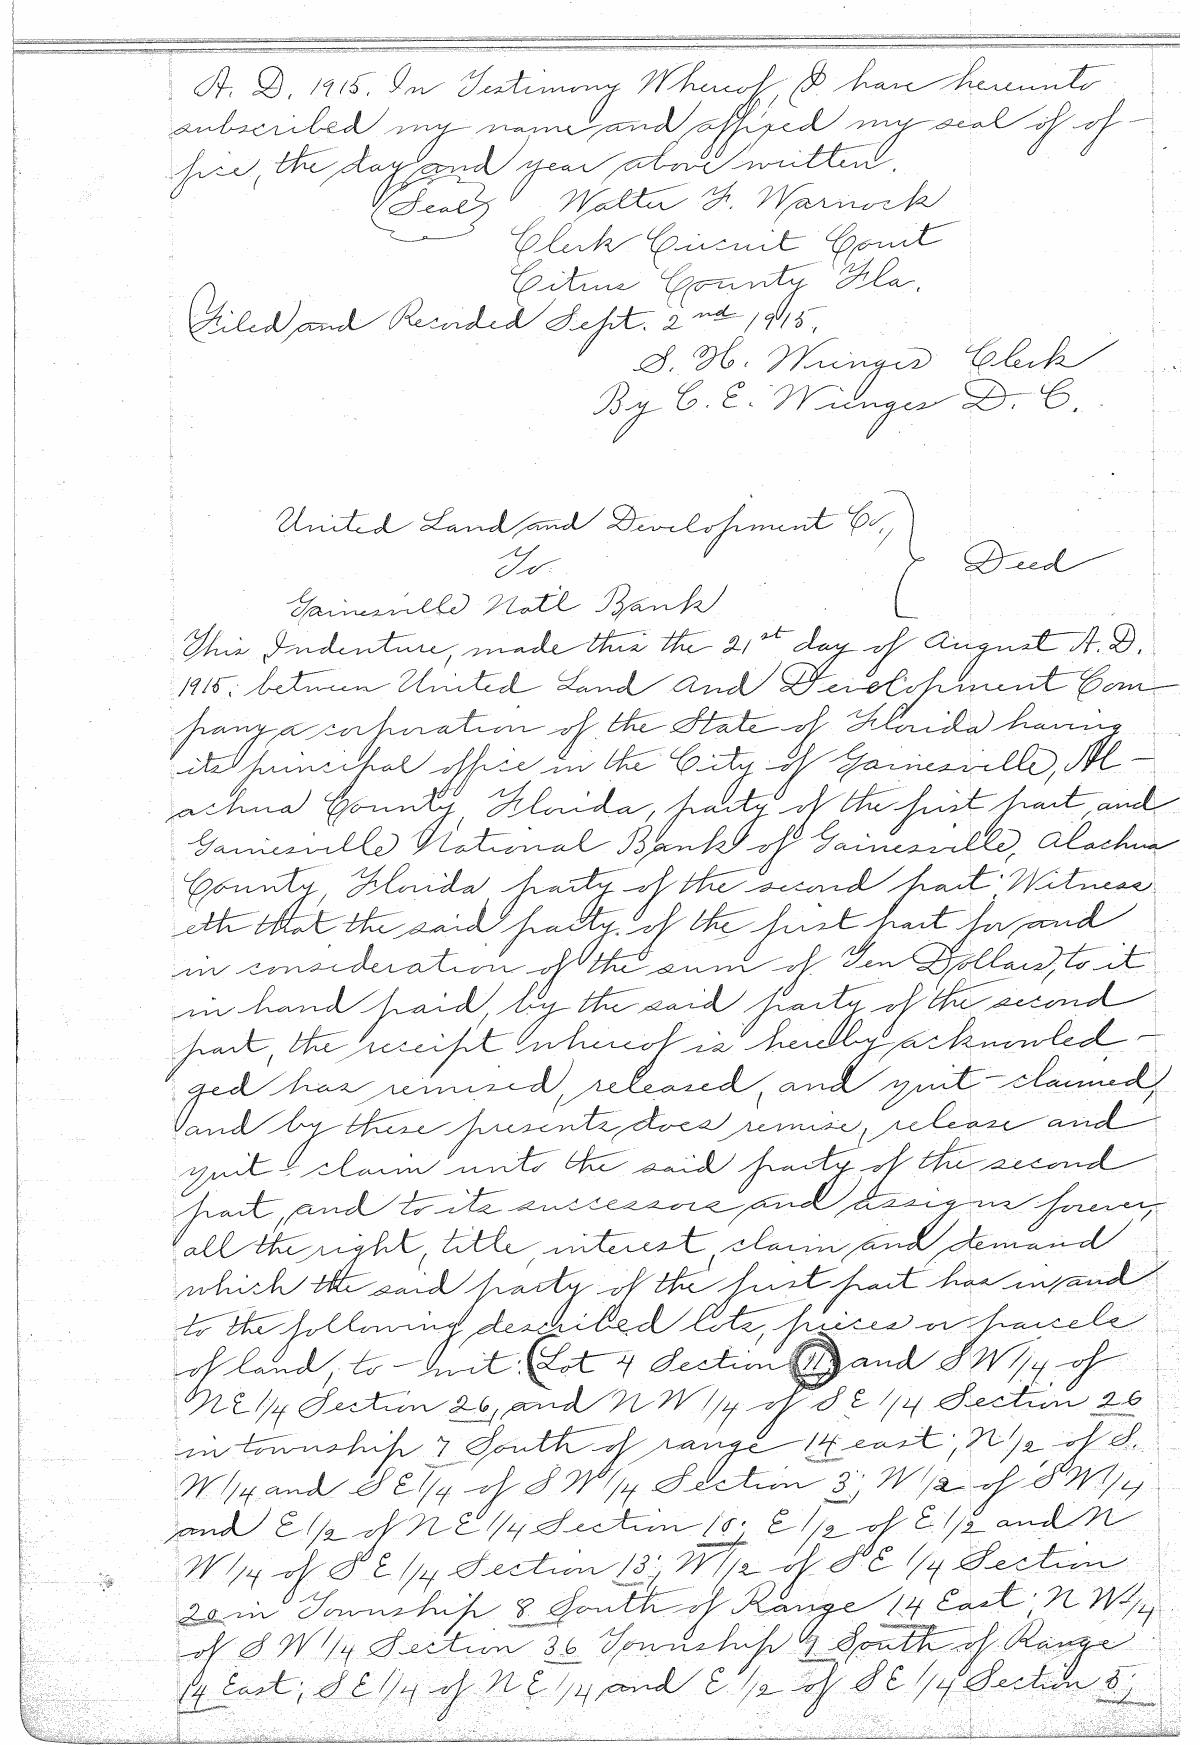 A. D. 1915. In Testimony Whereof, I have hereunto
subscribed my name and affixed my seal of of-
fice, the day and year above written.
(Seal) Walter F. Warnock
Clerk Circuit Court
Citrus County Fla.
Filed and Recorded Sept. 2nd 1915.
S. H. Wienges Clerk
By C. E. Wienges D. C.
United Land and Development Co.,
To
Deed
Gainesville Nat'l Bank
This Indenture, made this the 21st day of August A. D.
1915; between United Land and Development Com-
pany a corporation of the State of Florida having
its principal office in the City of Gainesville, Al-
achua County, Florida, party of the first part, and
Gainesville National Bank of Gainesville, Alachua
County, Florida, party of the second part: Witness
eth that the said party of the first part for and
in consideration of the sum of Ten Dollars, to it
in hand paid, by the said party of the second
part, the receipt whereof is hereby acknowled-
ged has remised, released, and quit-claimed,
and by these presents, does remise, release and
quit-claim unto the said party of the second
part, and to its successors and assigns forever,
all the right, title, interest, claim and demand
which the said party of the first part has in and
to the following described lots, pieces or parcels
of land, to-wit: (Lot 4 Section 11) and SW 1/4 of
NE 1/4 Section 26, and NW 1/4 of SE 1/4 Section 26
in township 7 South of range 14 east; N 1/2 of S.
W 1/4 and SE 1/4 of SW 1/4 Section 3; W 1/2 of SW 1/4
and E 1/2 of NE 1/4 Section 10; E 1/2 of E 1/2 and N
W 1/4 of SE 1/4 Section 13; W 1/2 of SE 1/4 Section
20 in Township 8 South of Range 14 East; NW 1/4
of SW 1/4 Section 36 Township 9 South of Range
14 East; SE 1/4 of NE 1/4 and E 1/2 of SE 1/4 Section 5;